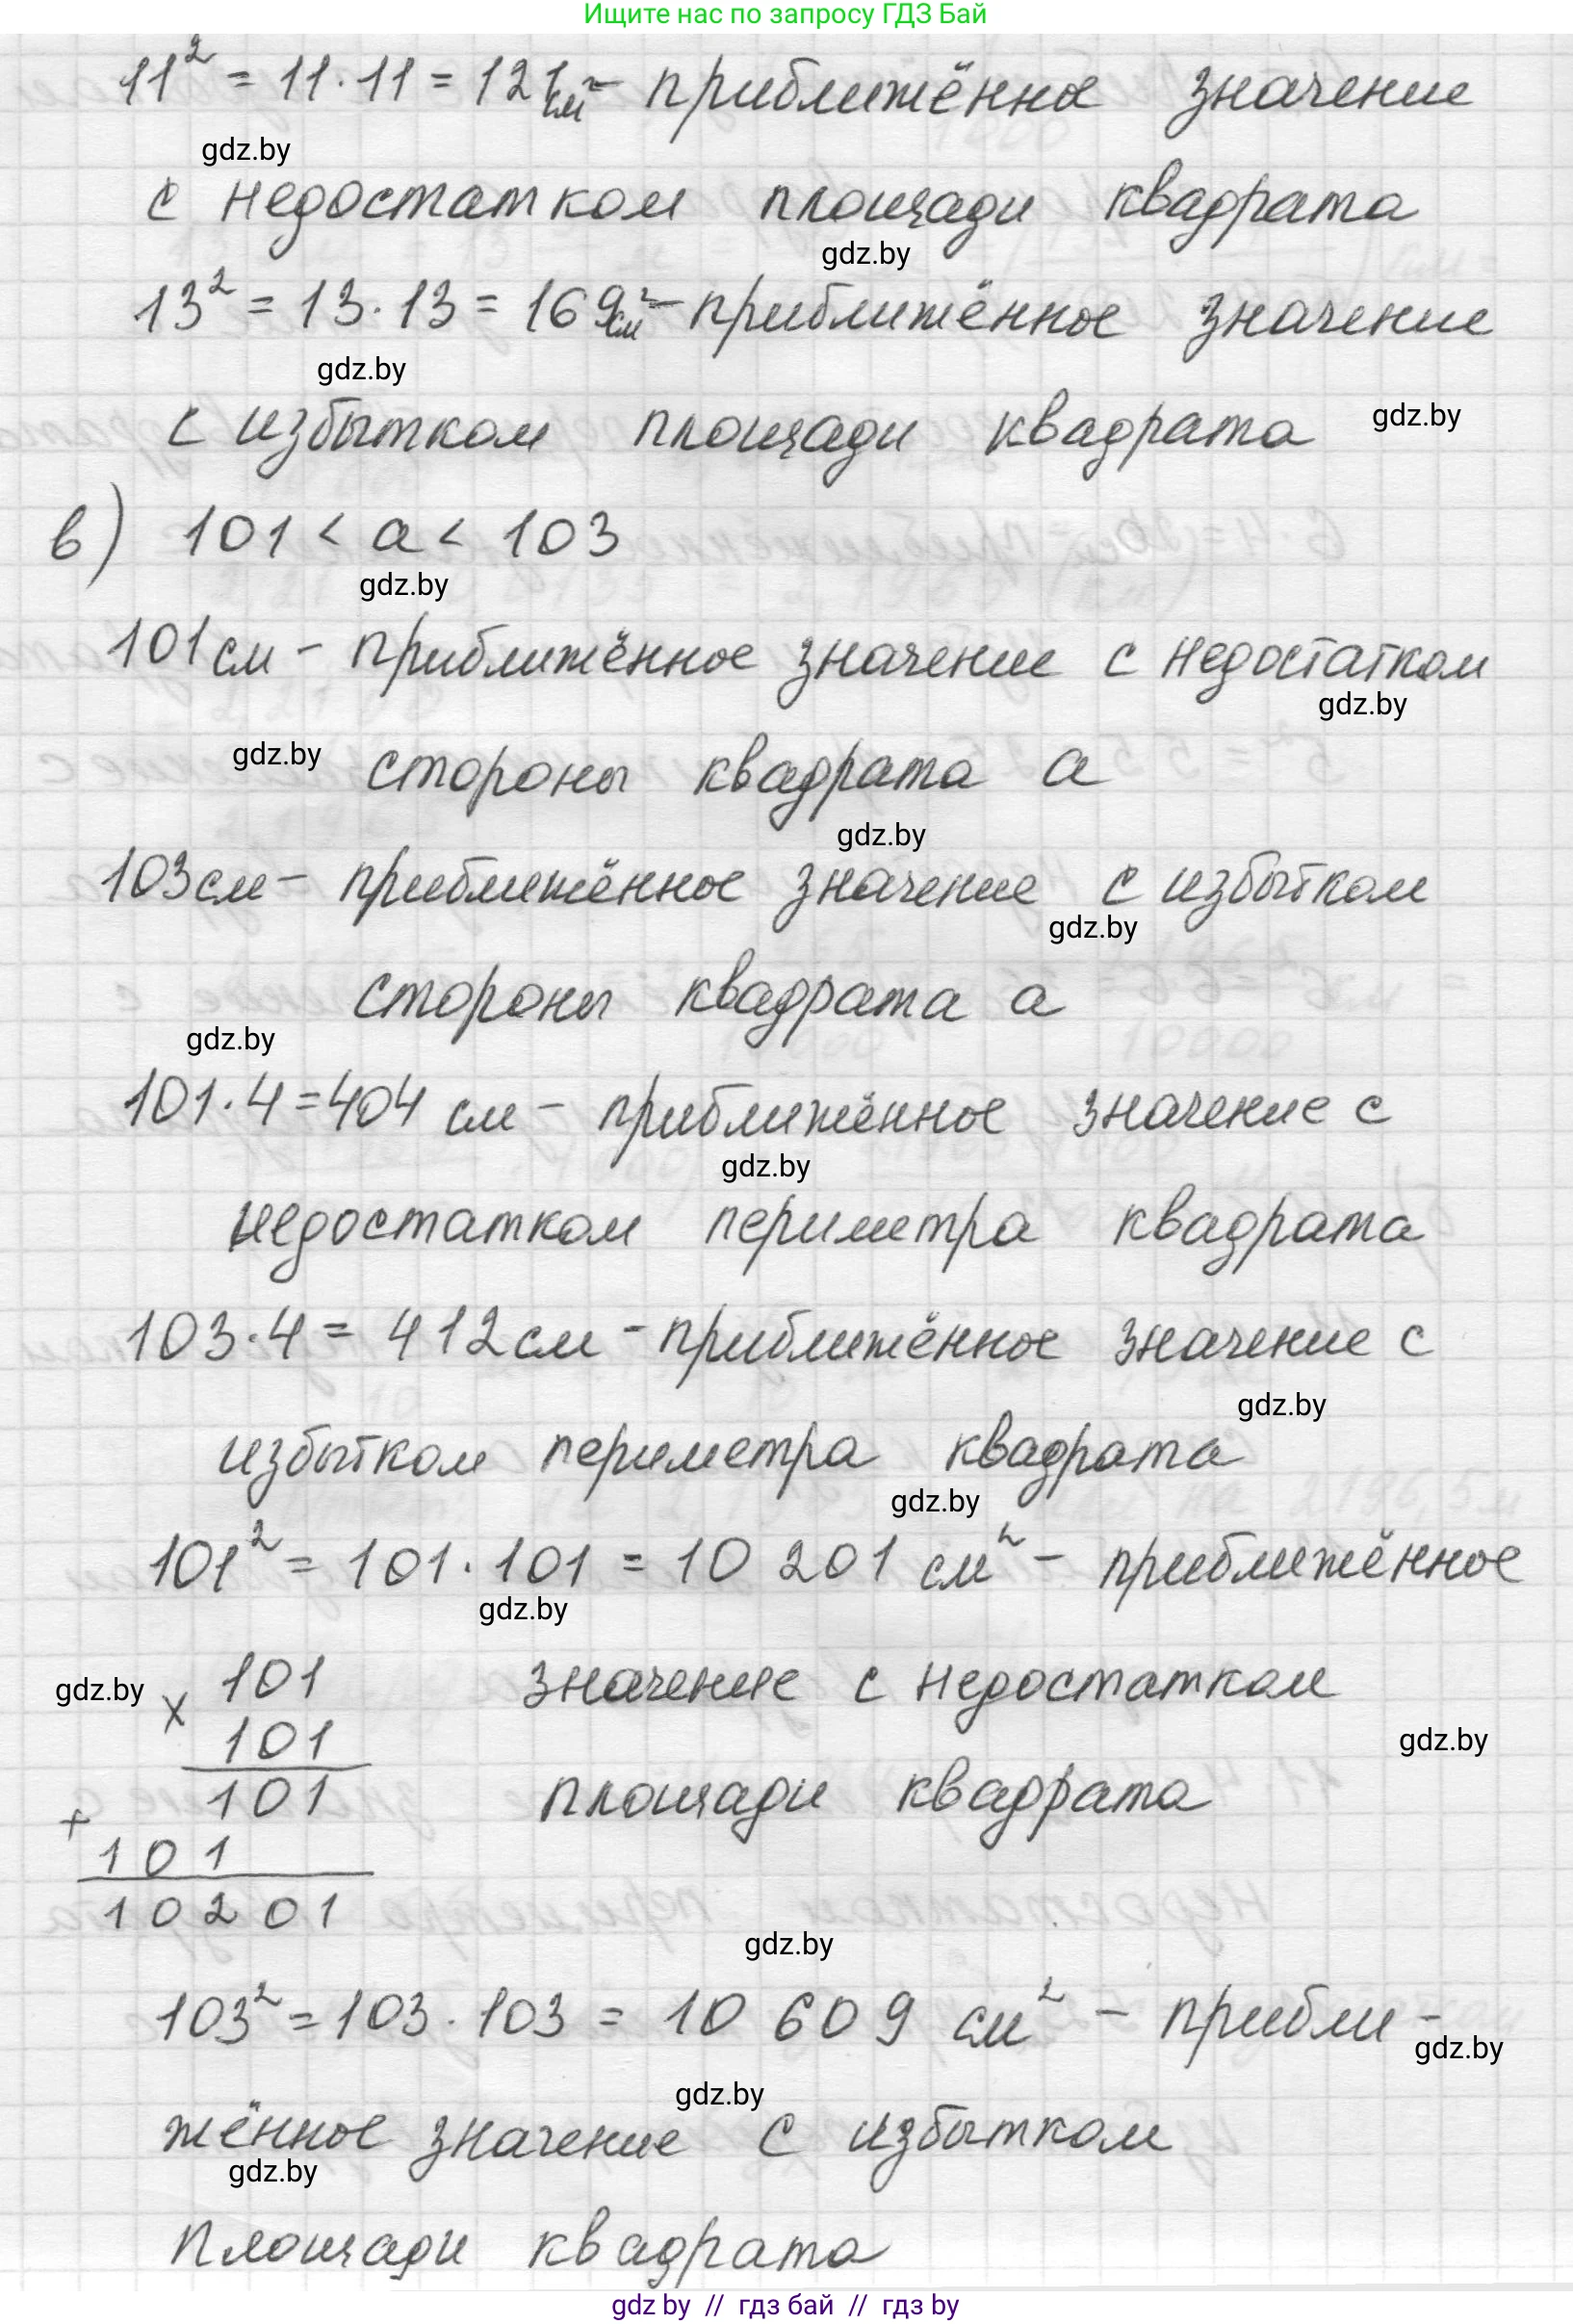 Ищите нас по запросу ГДЗ Бай
11² = 11 · 11 = 121 см² – приближённое значение
gdz.by
с недостатком площади квадрата
gdz.by
13² = 13 · 13 = 169 см² – приближённое значение
gdz.by
с избытком площади квадрата gdz.by
в) 101 < а < 103
gdz.by
101 см – приближённое значение с недостатком
gdz.by
gdz.by стороны квадрата а
gdz.by
103 см – приближённое значение с избытком
gdz.by
стороны квадрата а
gdz.by
101 · 4 = 404 см – приближённое значение с
gdz.by
недостатком периметра квадрата
103 · 4 = 412 см – приближённое значение с
gdz.by
избытком периметра квадрата
gdz.by
101² = 101 · 101 = 10 201 см² – приближённое
gdz.by
gdz.by × 101 значение с недостатком
101 gdz.by
101 площади квадрата
+
101
10201
gdz.by
103² = 103 · 103 = 10 609 см² – прибли-
gdz.by
gdz.by
жённое значение с избытком
gdz.by
площади квадрата
gdz by // гдз бай // гдз by